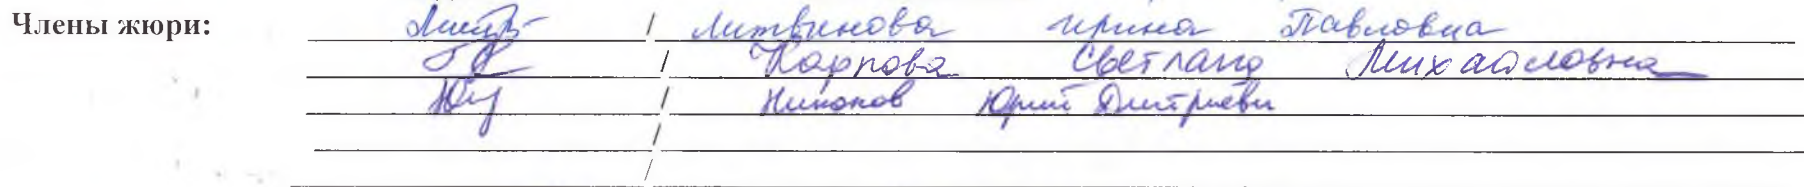 Члены жюри: / Литвинова Ирина Павловна
/ Карпова Светлана Михайловна
/ Юрий Дмитриеви
/
/